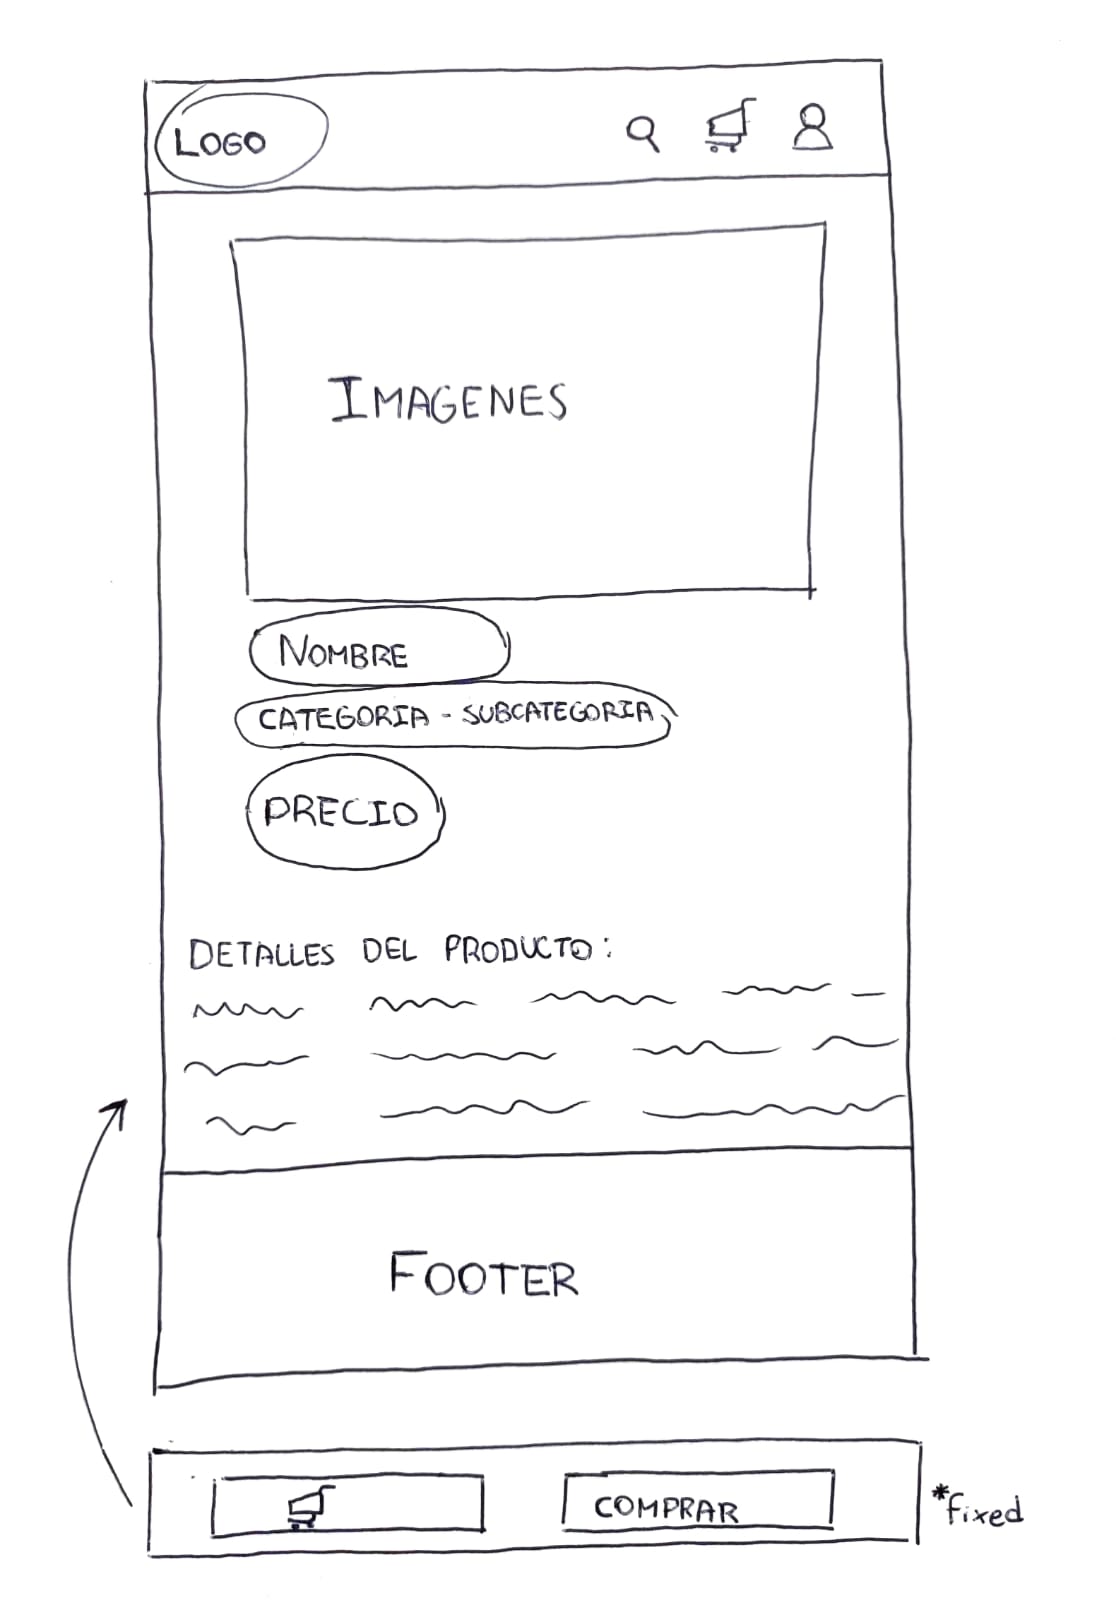 LOGO
IMAGENES
NOMBRE
CATEGORIA - SUBCATEGORIA
PRECIO
DETALLES DEL PRODUCTO:
FOOTER
COMPRAR
*fixed